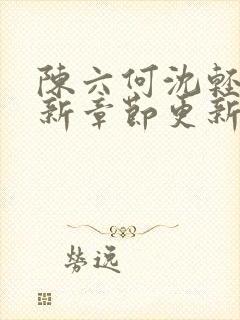 陳六何沈輕
新章節更新
勞逸